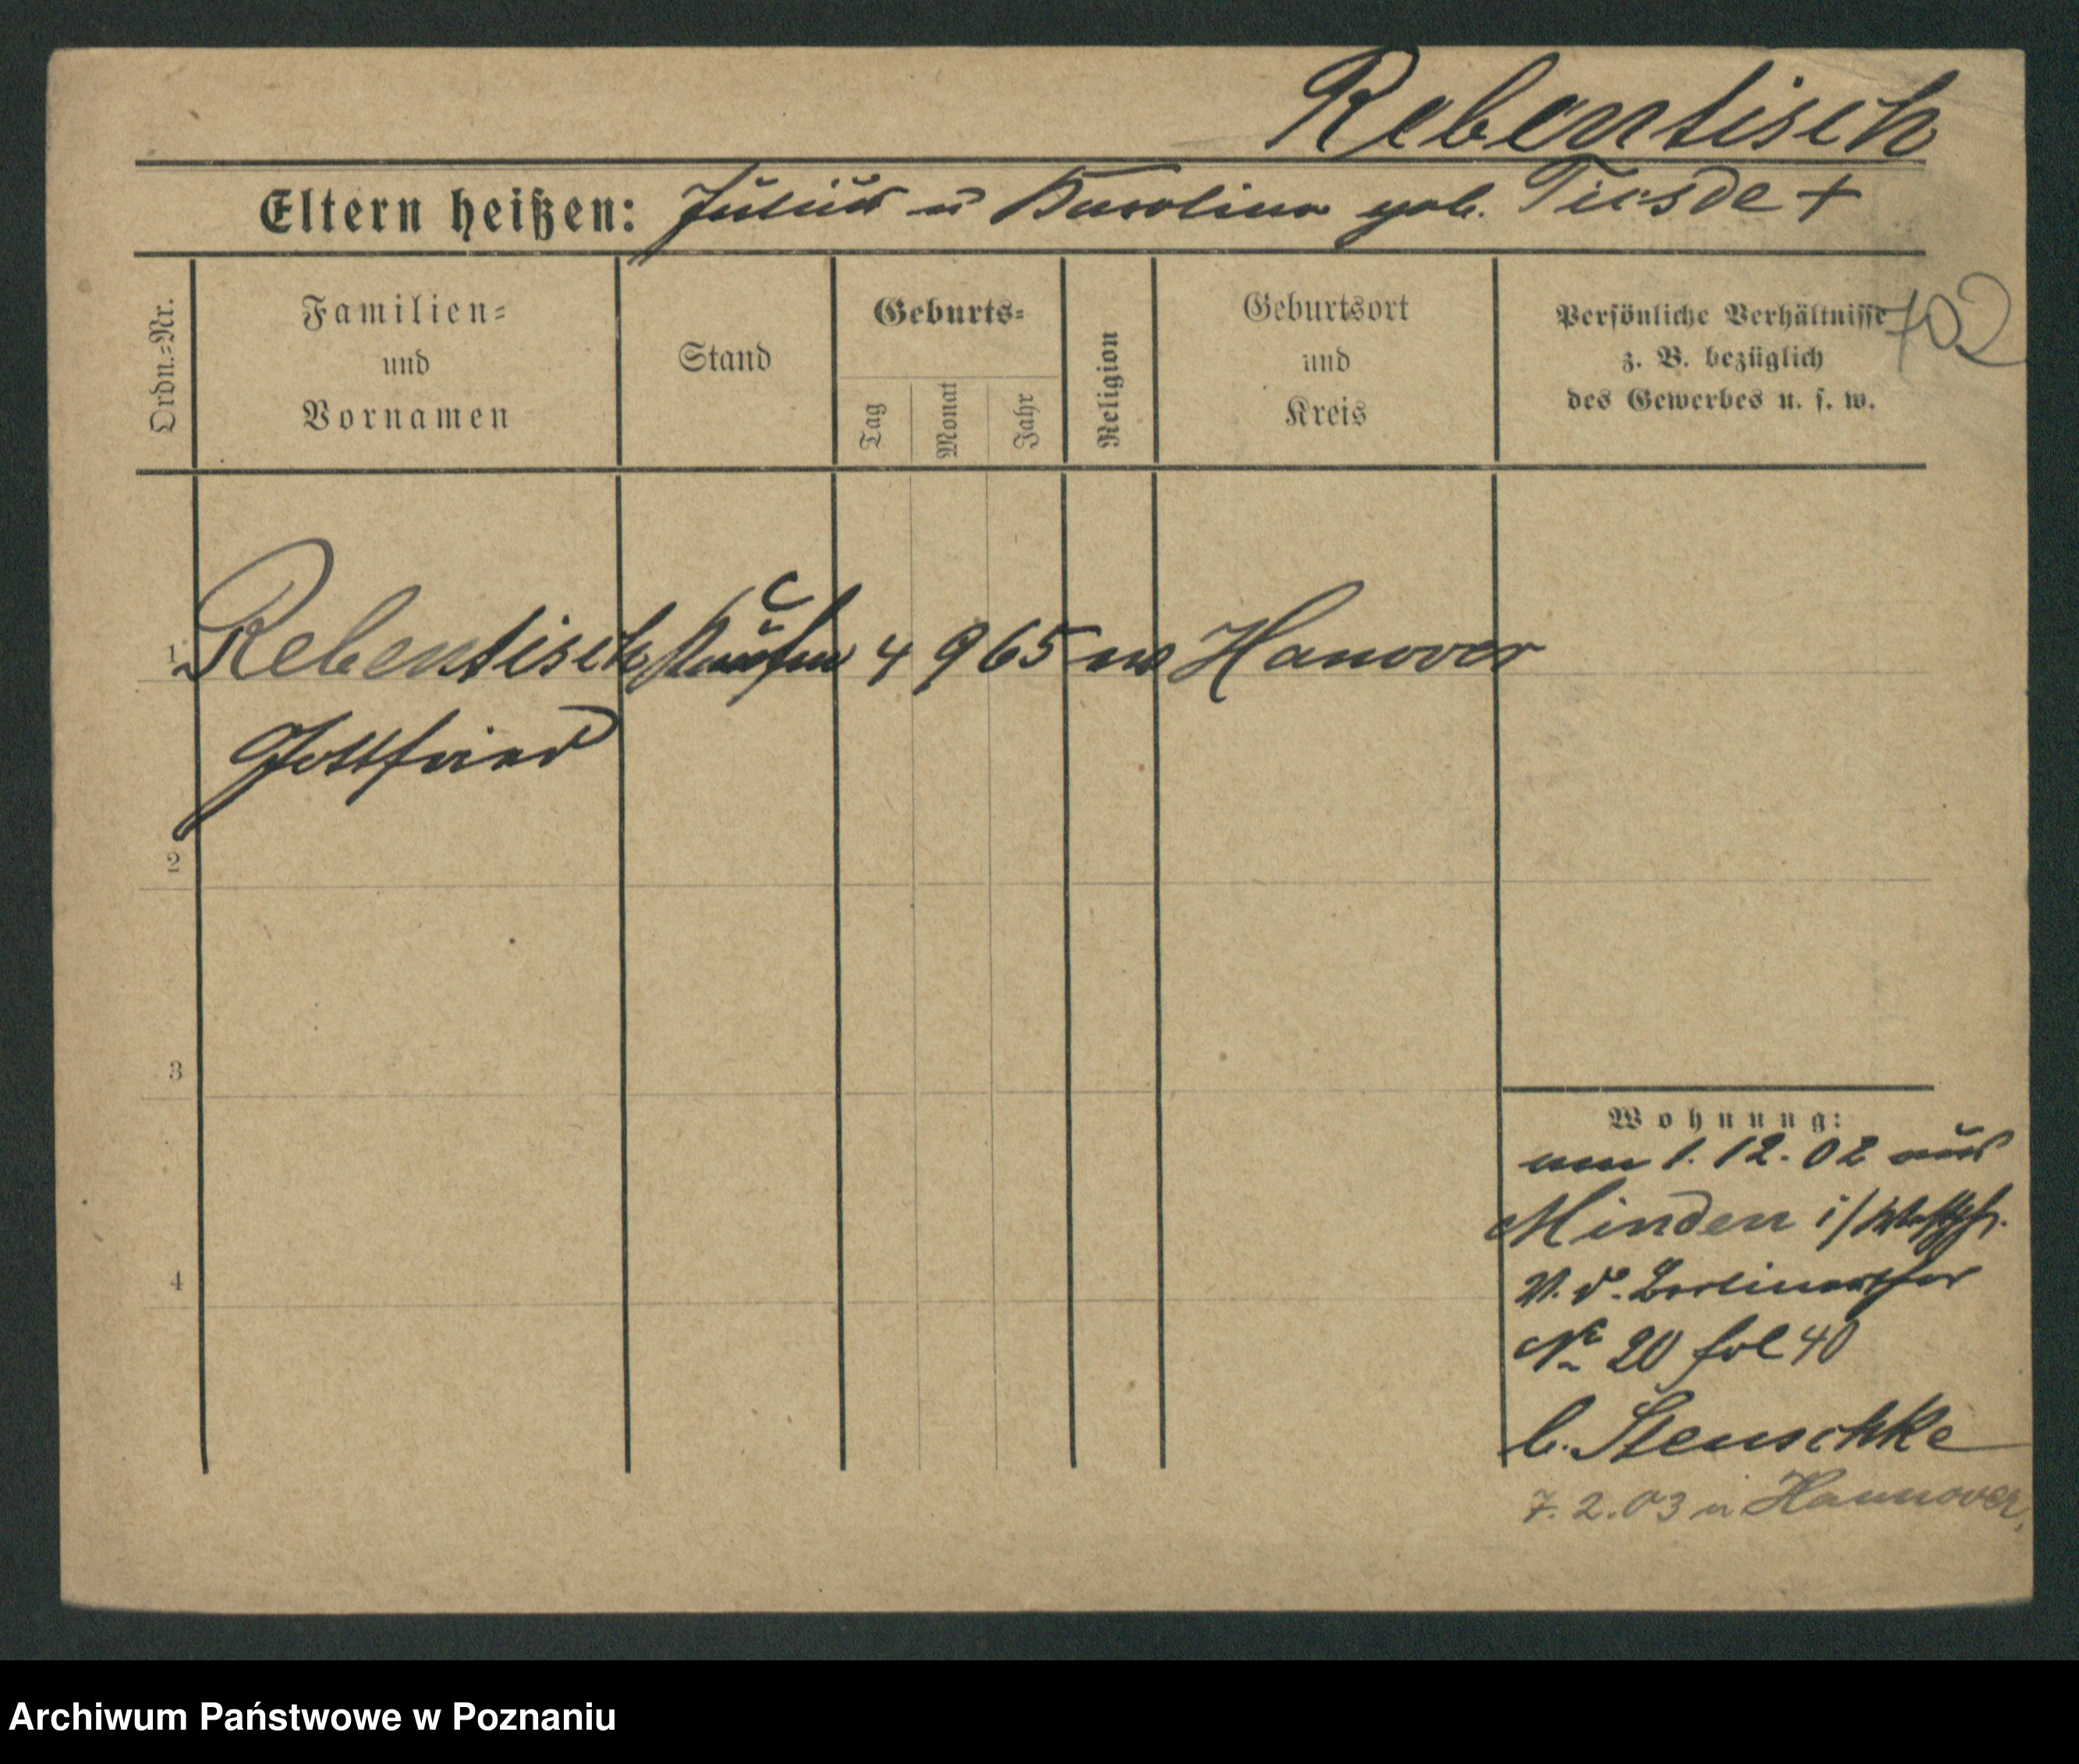 Rebentisch
Eltern heißen: Julius u Karoline geb. Tiesde +
702
Ordn.=Nr.
Familien=
und
Vornamen
Stand
Geburts=
Tag
Monat
Jahr
Religion
Geburtsort
und
Kreis
Persönliche Verhältnisse
z. B. bezüglich
des Gewerbes u. s. w.
1 Rebentisch Kaufm 4 9 65 ev Hanover
Gottfried
2
3
4
Wohnung:
am 1. 12. 02 aus
Minden i/Westph.
V. d. Berlinerthor
No 20 fol 40
b. Stenschke
7. 2. 03 n Hannover.
Archiwum Państwowe w Poznaniu